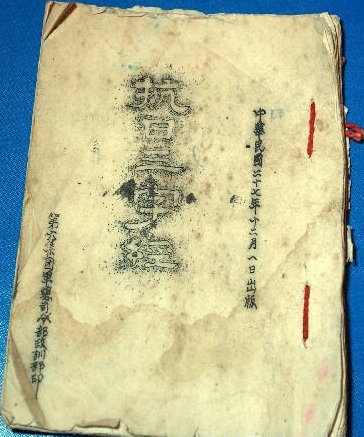 中華民國二十七年十二月一日出版
抗日三字經
第六集团軍總司令部政訓部印